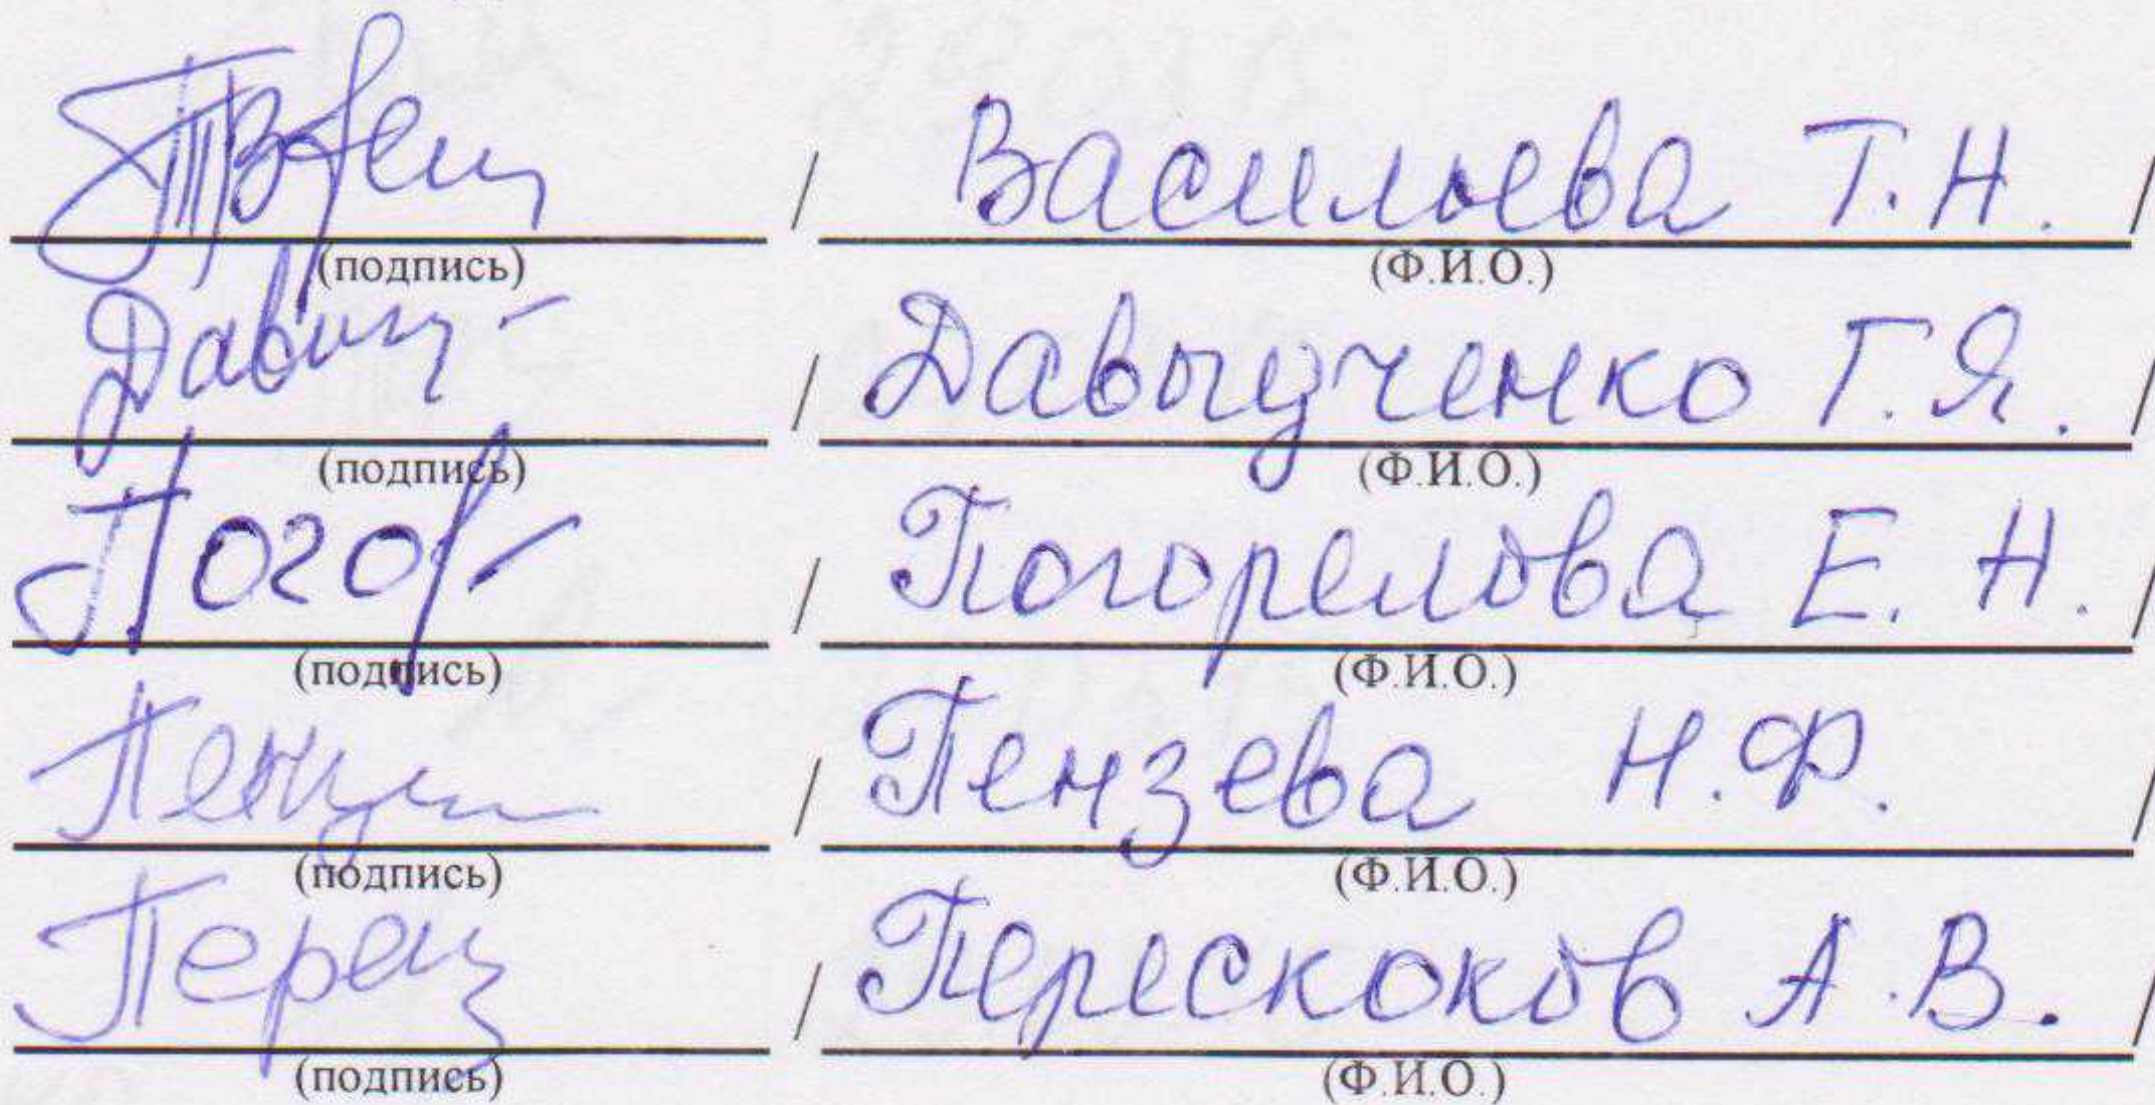 / Васильева Т.Н. /
(подпись) (Ф.И.О.)
/ Давыдченко Г.Я. /
(подпись) (Ф.И.О.)
Погор / Погорелова Е. Н. /
(подпись) (Ф.И.О.)
/ Пензева Н.Ф. /
(подпись) (Ф.И.О.)
/ Перескоков А.В. /
(подпись) (Ф.И.О.)